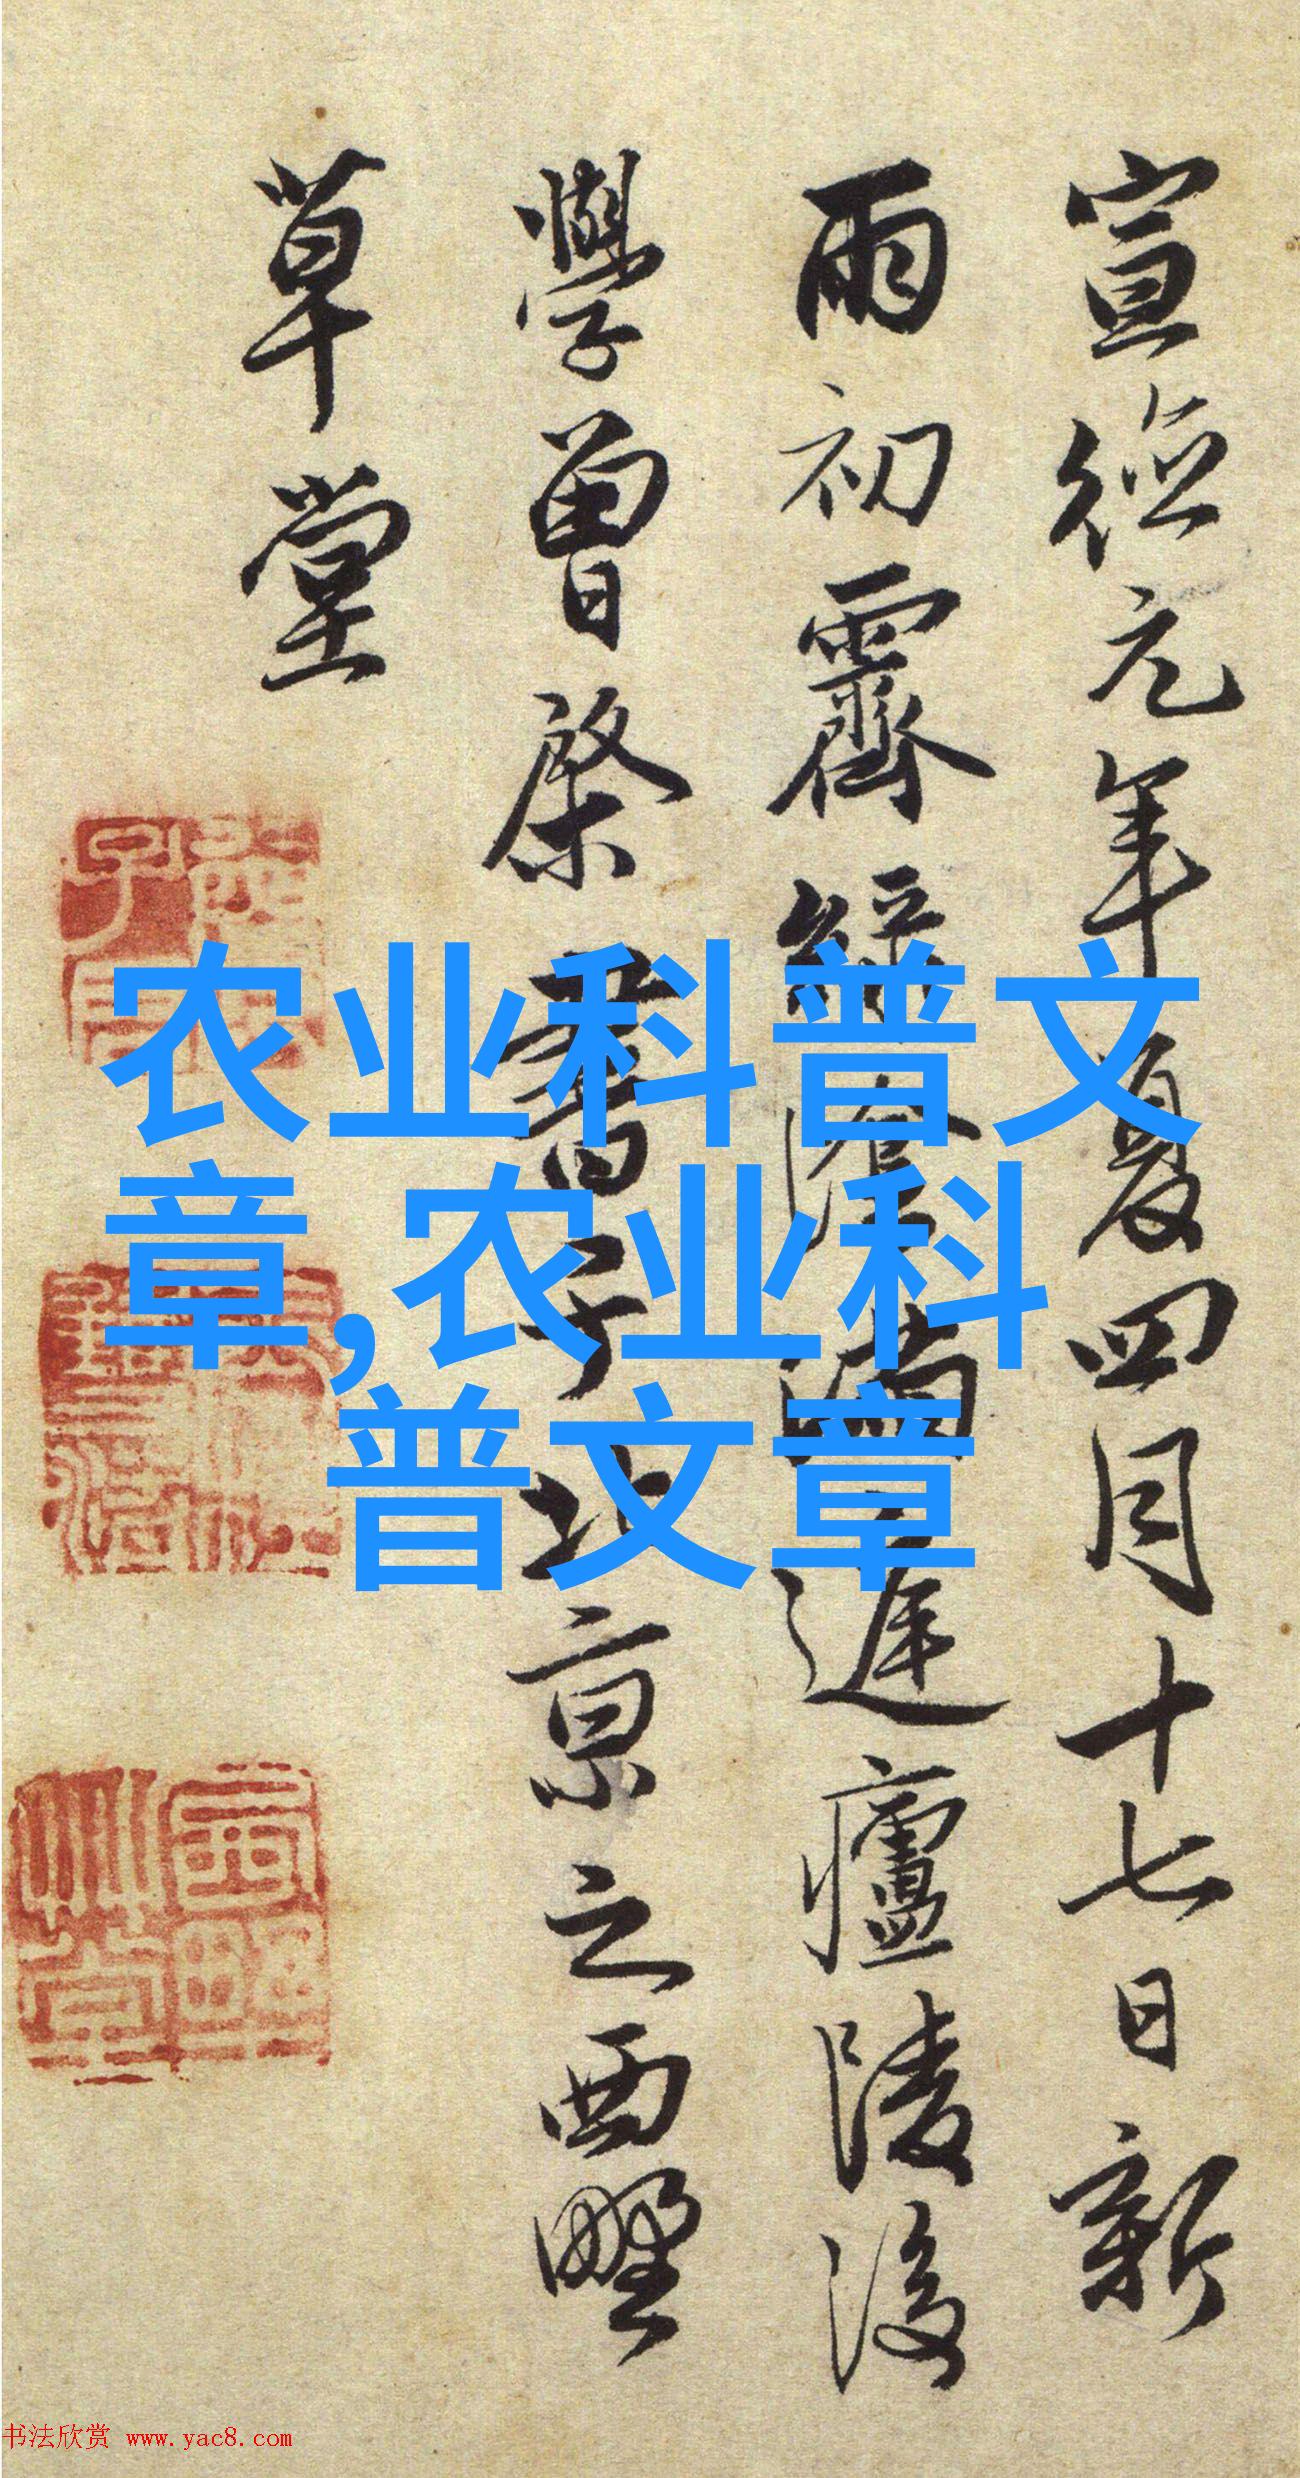 宣德元年夏四月十七日新
雨初霽綠陰滿遲廬陵後
學曾棨書于北京之西墅
草堂
农业科普文
章,农业科
普文章
书法欣赏 www.yac8.com